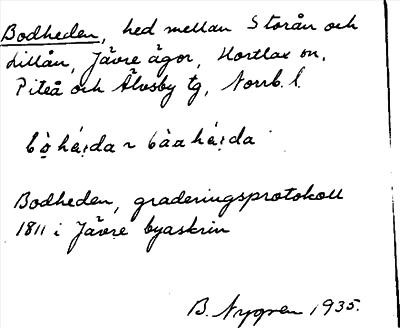 Bodheden, hed mellan Storån och
Lillån, Jävre ägor, Hortlax sn,
Piteå och Älvsby tg, Norrb. l.
bò̩ há̩:da ~ bòa há̩:da
Bodheden, graderingsprotokoll
1811 i Jävre byaskrin
B. Nygren 1935.